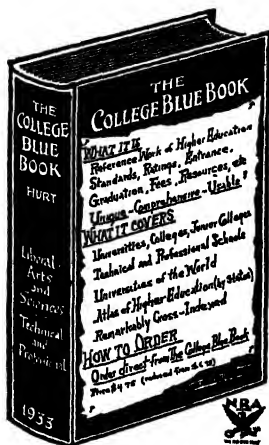 THE
COLLEGE
BLUE
BOOK
HURT
Liberal-
Arts
and
Sciences
Technical
and
Professional
1933
THE
COLLEGE BLUE BOOK
WHAT IT IS
Reference Work of Higher Education
Standards, Ratings, Entrance,
Graduation, Fees, Resources, etc
Unique-Comprehensive-Usable!
WHAT IT COVERS
Universities, Colleges, Junior Colleges
Technical and Professional Schools
Universities of the World
Atlas of Higher Education (by States)
Remarkably Cross-Indexed
HOW TO ORDER
Order direct from The College Blue Book
Price $4.75 (reduced from
NRA